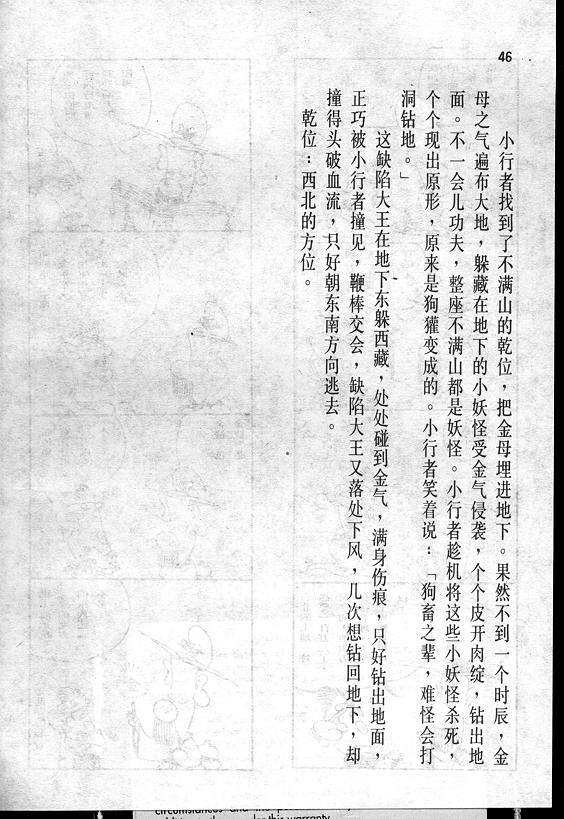 46
小行者找到了不满山的乾位，把金母埋进地下。果然不到一个时辰，金
母之气遍布大地，躲藏在地下的小妖怪受金气侵袭，个个皮开肉绽，钻出地
面。不一会儿功夫，整座不满山都是妖怪。小行者趁机将这些小妖怪杀死，
个个现出原形，原来是狗獾变成的。小行者笑着说：「狗畜之辈，难怪会打
洞钻地。」
这缺陷大王在地下东躲西藏，处处碰到金气，满身伤痕，只好钻出地面，
正巧被小行者撞见，鞭棒交会，缺陷大王又落处下风，几次想钻回地下，却
撞得头破血流，只好朝东南方向逃去。
乾位：西北的方位。